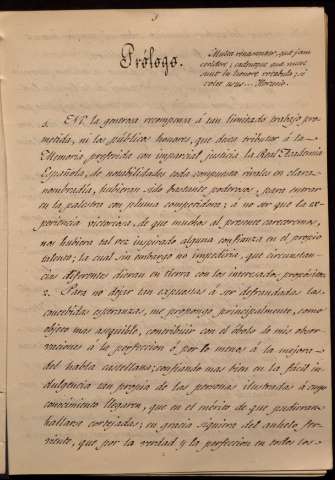 3
Prólogo.
Multa renascentur, quæ jam
cecidere; cadentque quæ nunc
sunt in honore vocabula; si
volet usus... Horacio.
1. Ni la generosa recompensa á tan limitado trabajo pro-
metida, ni los públicos honores, que desea tributar á la
Memoria preferida con imparcial justicia la Real Academia
Española, de notabilidades toda compuesta rivales en clara
nombradía, hubieran sido bastante poderosos, para entrar
en la palestra con pluma competidora; á no ser que la ex-
periencia victoriosa, de que muchos al presente carecemos,
nos hubiera tal vez inspirado alguna confianza en el propio
talento; la cual sin embargo no impediría, que circunstan-
cias diferentes dieran en tierra con los interesados propósitos.
2. Para no dejar tan expuestas á ser defraudadas las
concebidas esperanzas, me propongo principalmente, como
objeto mas asequible, contribuir con el óbolo de mis obser-
vaciones á la perfeccion ó por lo menos á la mejora
del habla castellana; confiando mas bien en la fácil in-
dulgencia tan propia de las personas ilustradas á cuyo
conocimiento llegaren, que en el mérito de que pudieran
hallarse cortejadas; en gracia siquiera del anhelo fer-
viente, que por la verdad y la perfeccion en todos los